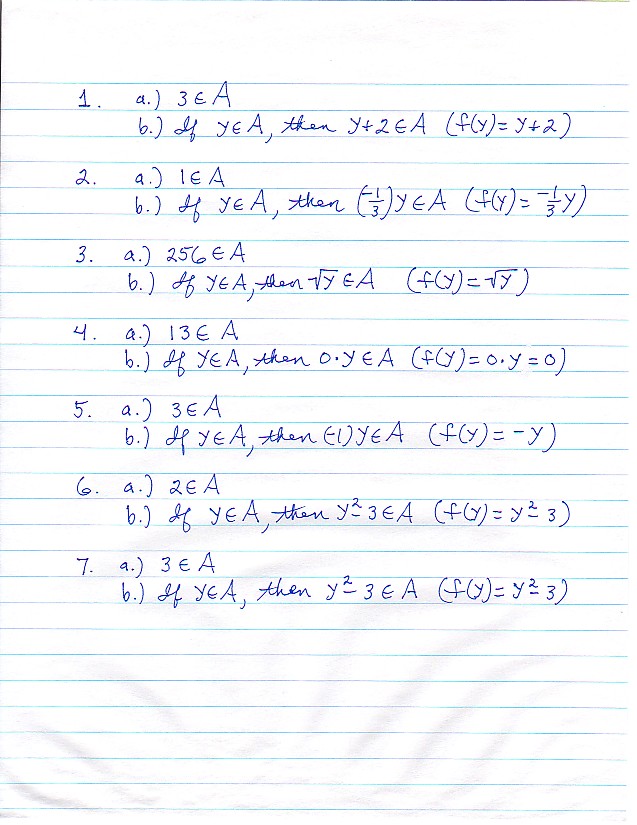 1. a.) 3 ∈ A
b.) If y ∈ A, then y+2 ∈ A (f(y) = y+2)
2. a.) 1 ∈ A
b.) If y ∈ A, then (-1/3)y ∈ A (f(y) = -1/3 y)
3. a.) 256 ∈ A
b.) If y ∈ A, then √y ∈ A (f(y) = √y)
4. a.) 13 ∈ A
b.) If y ∈ A, then 0·y ∈ A (f(y) = 0·y = 0)
5. a.) 3 ∈ A
b.) If y ∈ A, then (-1)y ∈ A (f(y) = -y)
6. a.) 2 ∈ A
b.) If y ∈ A, then y² - 3 ∈ A (f(y) = y² - 3)
7. a.) 3 ∈ A
b.) If y ∈ A, then y² - 3 ∈ A (f(y) = y² - 3)